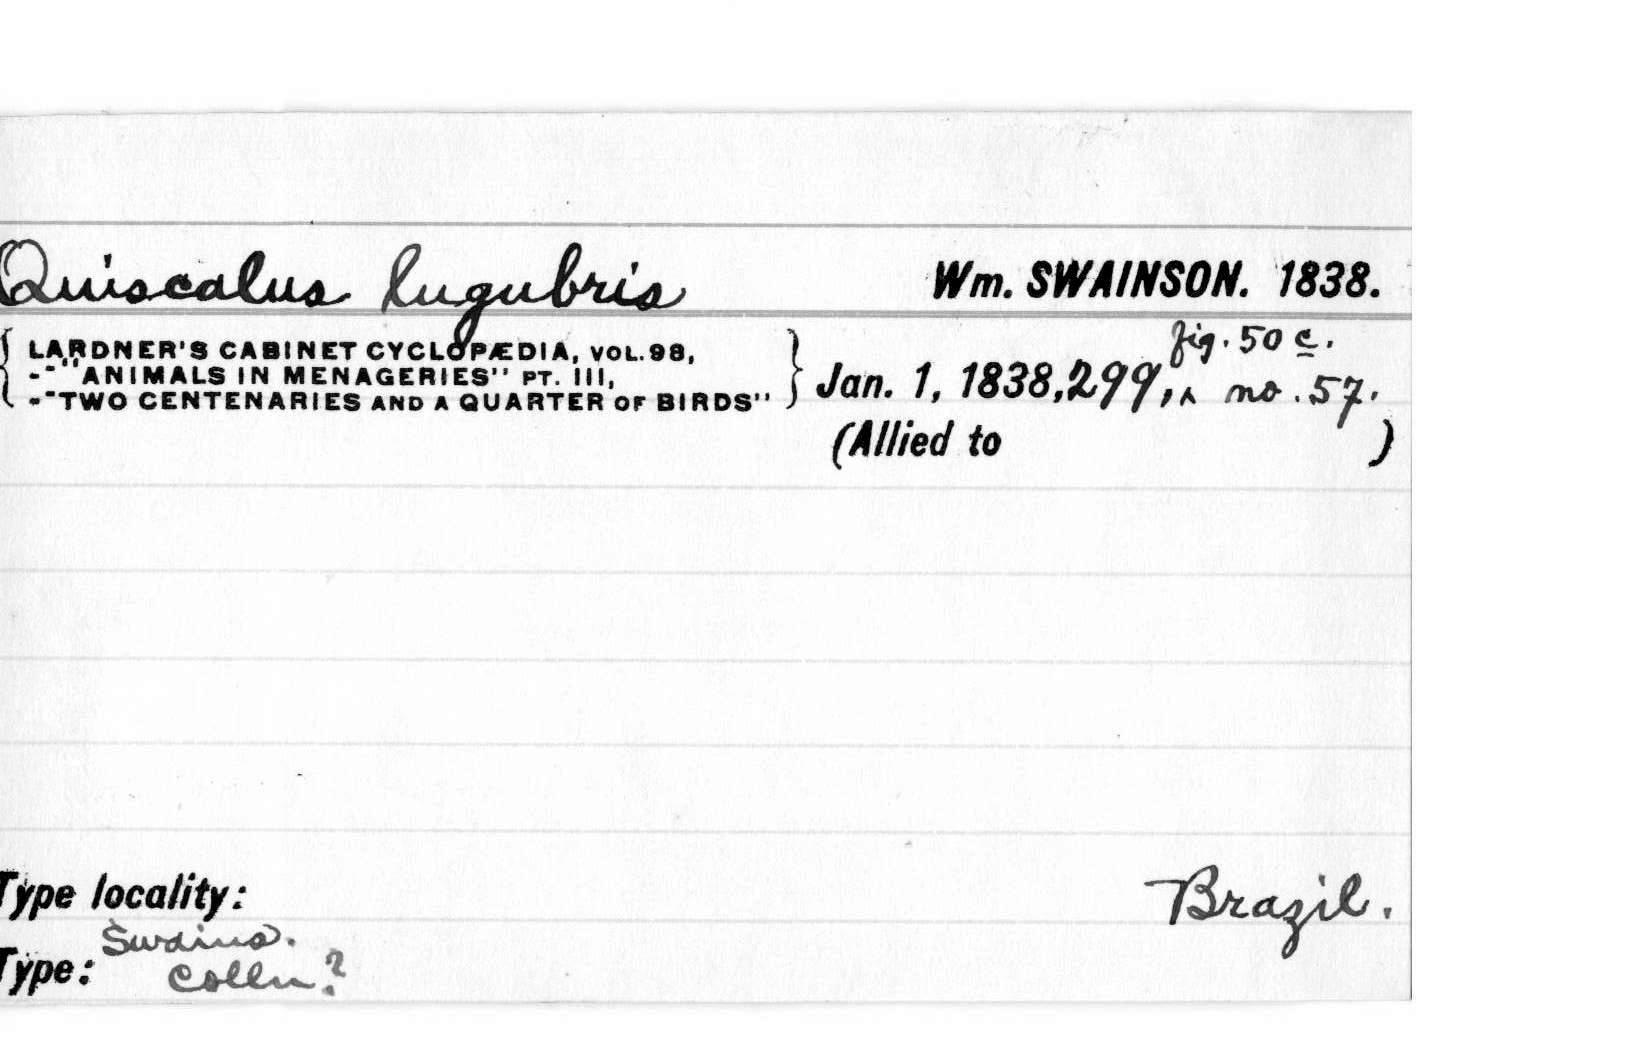 Quiscalus lugubris Wm. SWAINSON. 1838.
LARDNER'S CABINET CYCLOPÆDIA, VOL. 98,
-- "ANIMALS IN MENAGERIES" PT. III,
-- "TWO CENTENARIES AND A QUARTER OF BIRDS"
fig. 50 c.
Jan. 1, 1838, 299, ^ no. 57.
(Allied to )
Type locality: Brazil.
Swains.
Type: Colln?